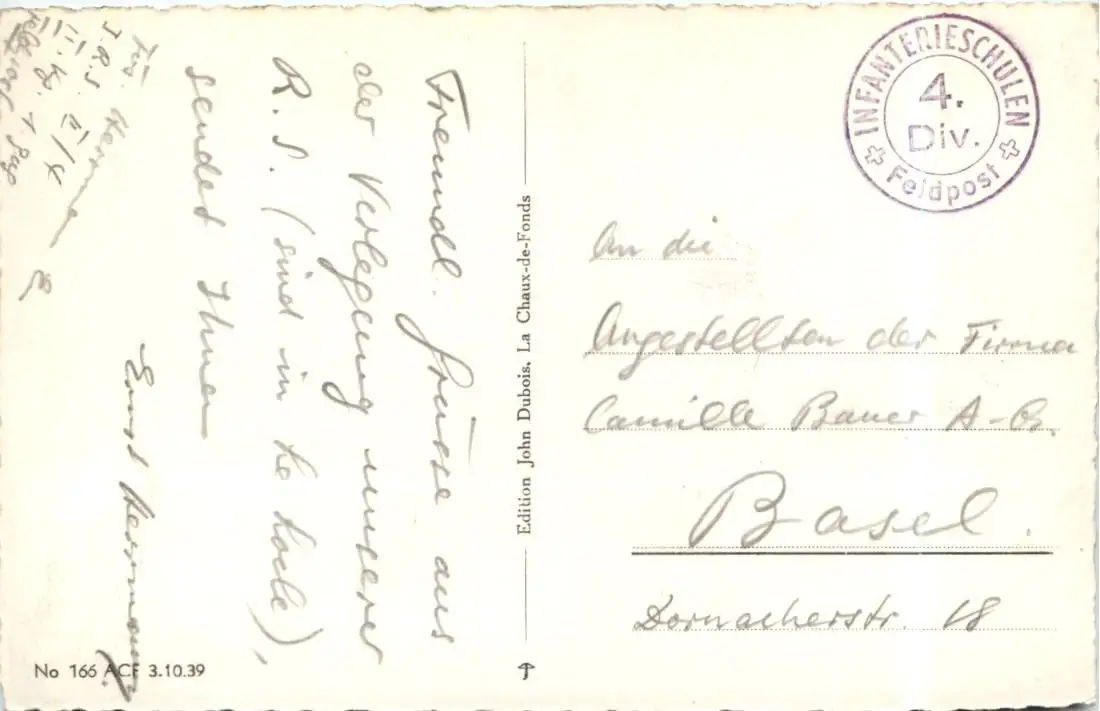 Füs. Herrmann E
I.R.S. II/4
Freundl. Grüsse aus
der Verlegung unserer
R.S. (sind in Le Locle),
sendet Ihnen
Ernst Herrmann
No 166 ACF 3.10.39
Edition John Dubois, La Chaux-de-Fonds
INFANTERIESCHULEN
4.
Div.
Feldpost
An die
Angestellten der Firma
Camille Bauer A-G.
Basel.
Dornacherstr. 18